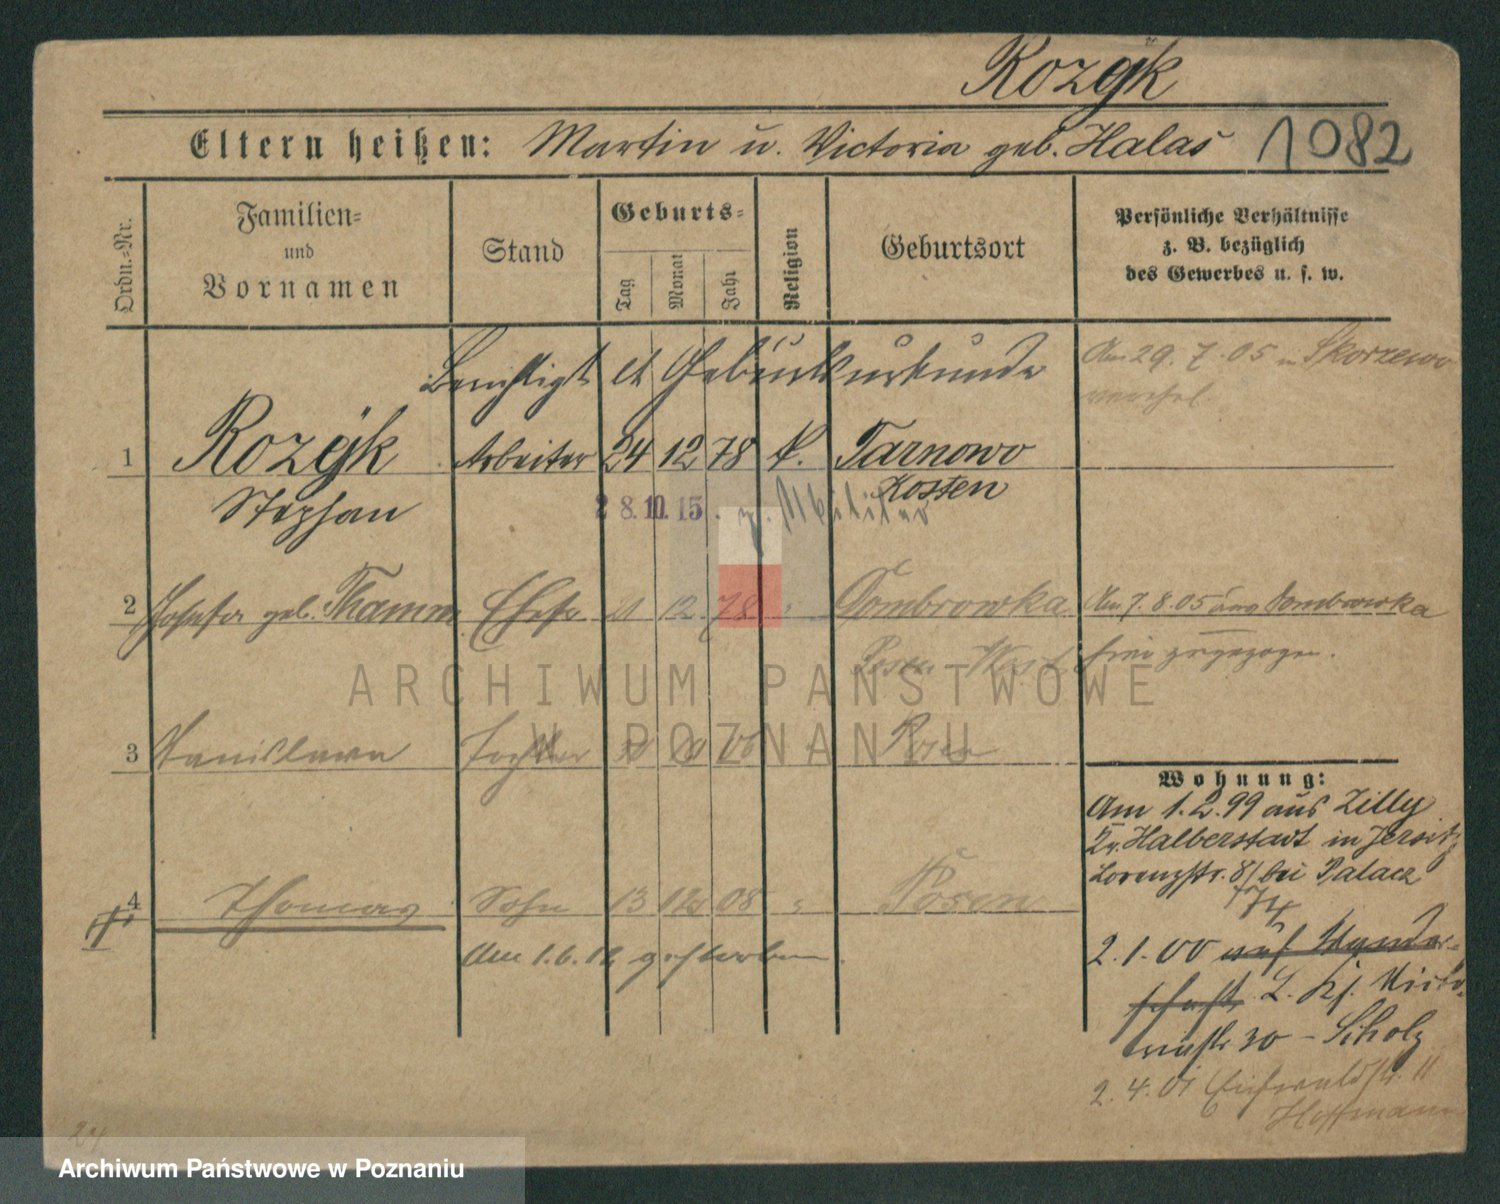 Rozÿk
Eltern heißen: Martin u. Victoria geb. Halas 1082
Ordn.-Nr.
Familien-
und
Vornamen
Stand
Geburts-
Tag
Monat
Jahr
Religion
Geburtsort
Persönliche Verhältnisse
z. B. bezüglich
des Gewerbes u. s. w.
Berichtigt lt Geburtsurkunde
Am 29. 7. 05 in Skorzewo
verehel.
1 Rozÿk Arbeiter 24 12 78 k. Tarnowo
Stephan Kosten
28.10.15. z. Militär
2 Josefa geb. Thamm Ehefr 21 12 78 " Dombrowka Am 7. 8. 05 aus Dombrowka
Posen West hier zugezogen.
3 Stanislawa Tochter 06 Posen
4 Thomas Sohn 13 12 08 " Posen
Am 1. 6. 12 gestorben.
Wohnung:
Am 1. 2. 99 aus Zilly
Kr. Halberstadt in Jersitz
Lorenzstr. 8/ bei Palacz
2. 1. 00 auf Wander-
schaft. Victo-
riastr 30 - Scholz
2. 4. 01 Eichwaldstr. 11
Hoffmann
24
ARCHIWUM PAŃSTWOWE
W POZNANIU
Archiwum Państwowe w Poznaniu